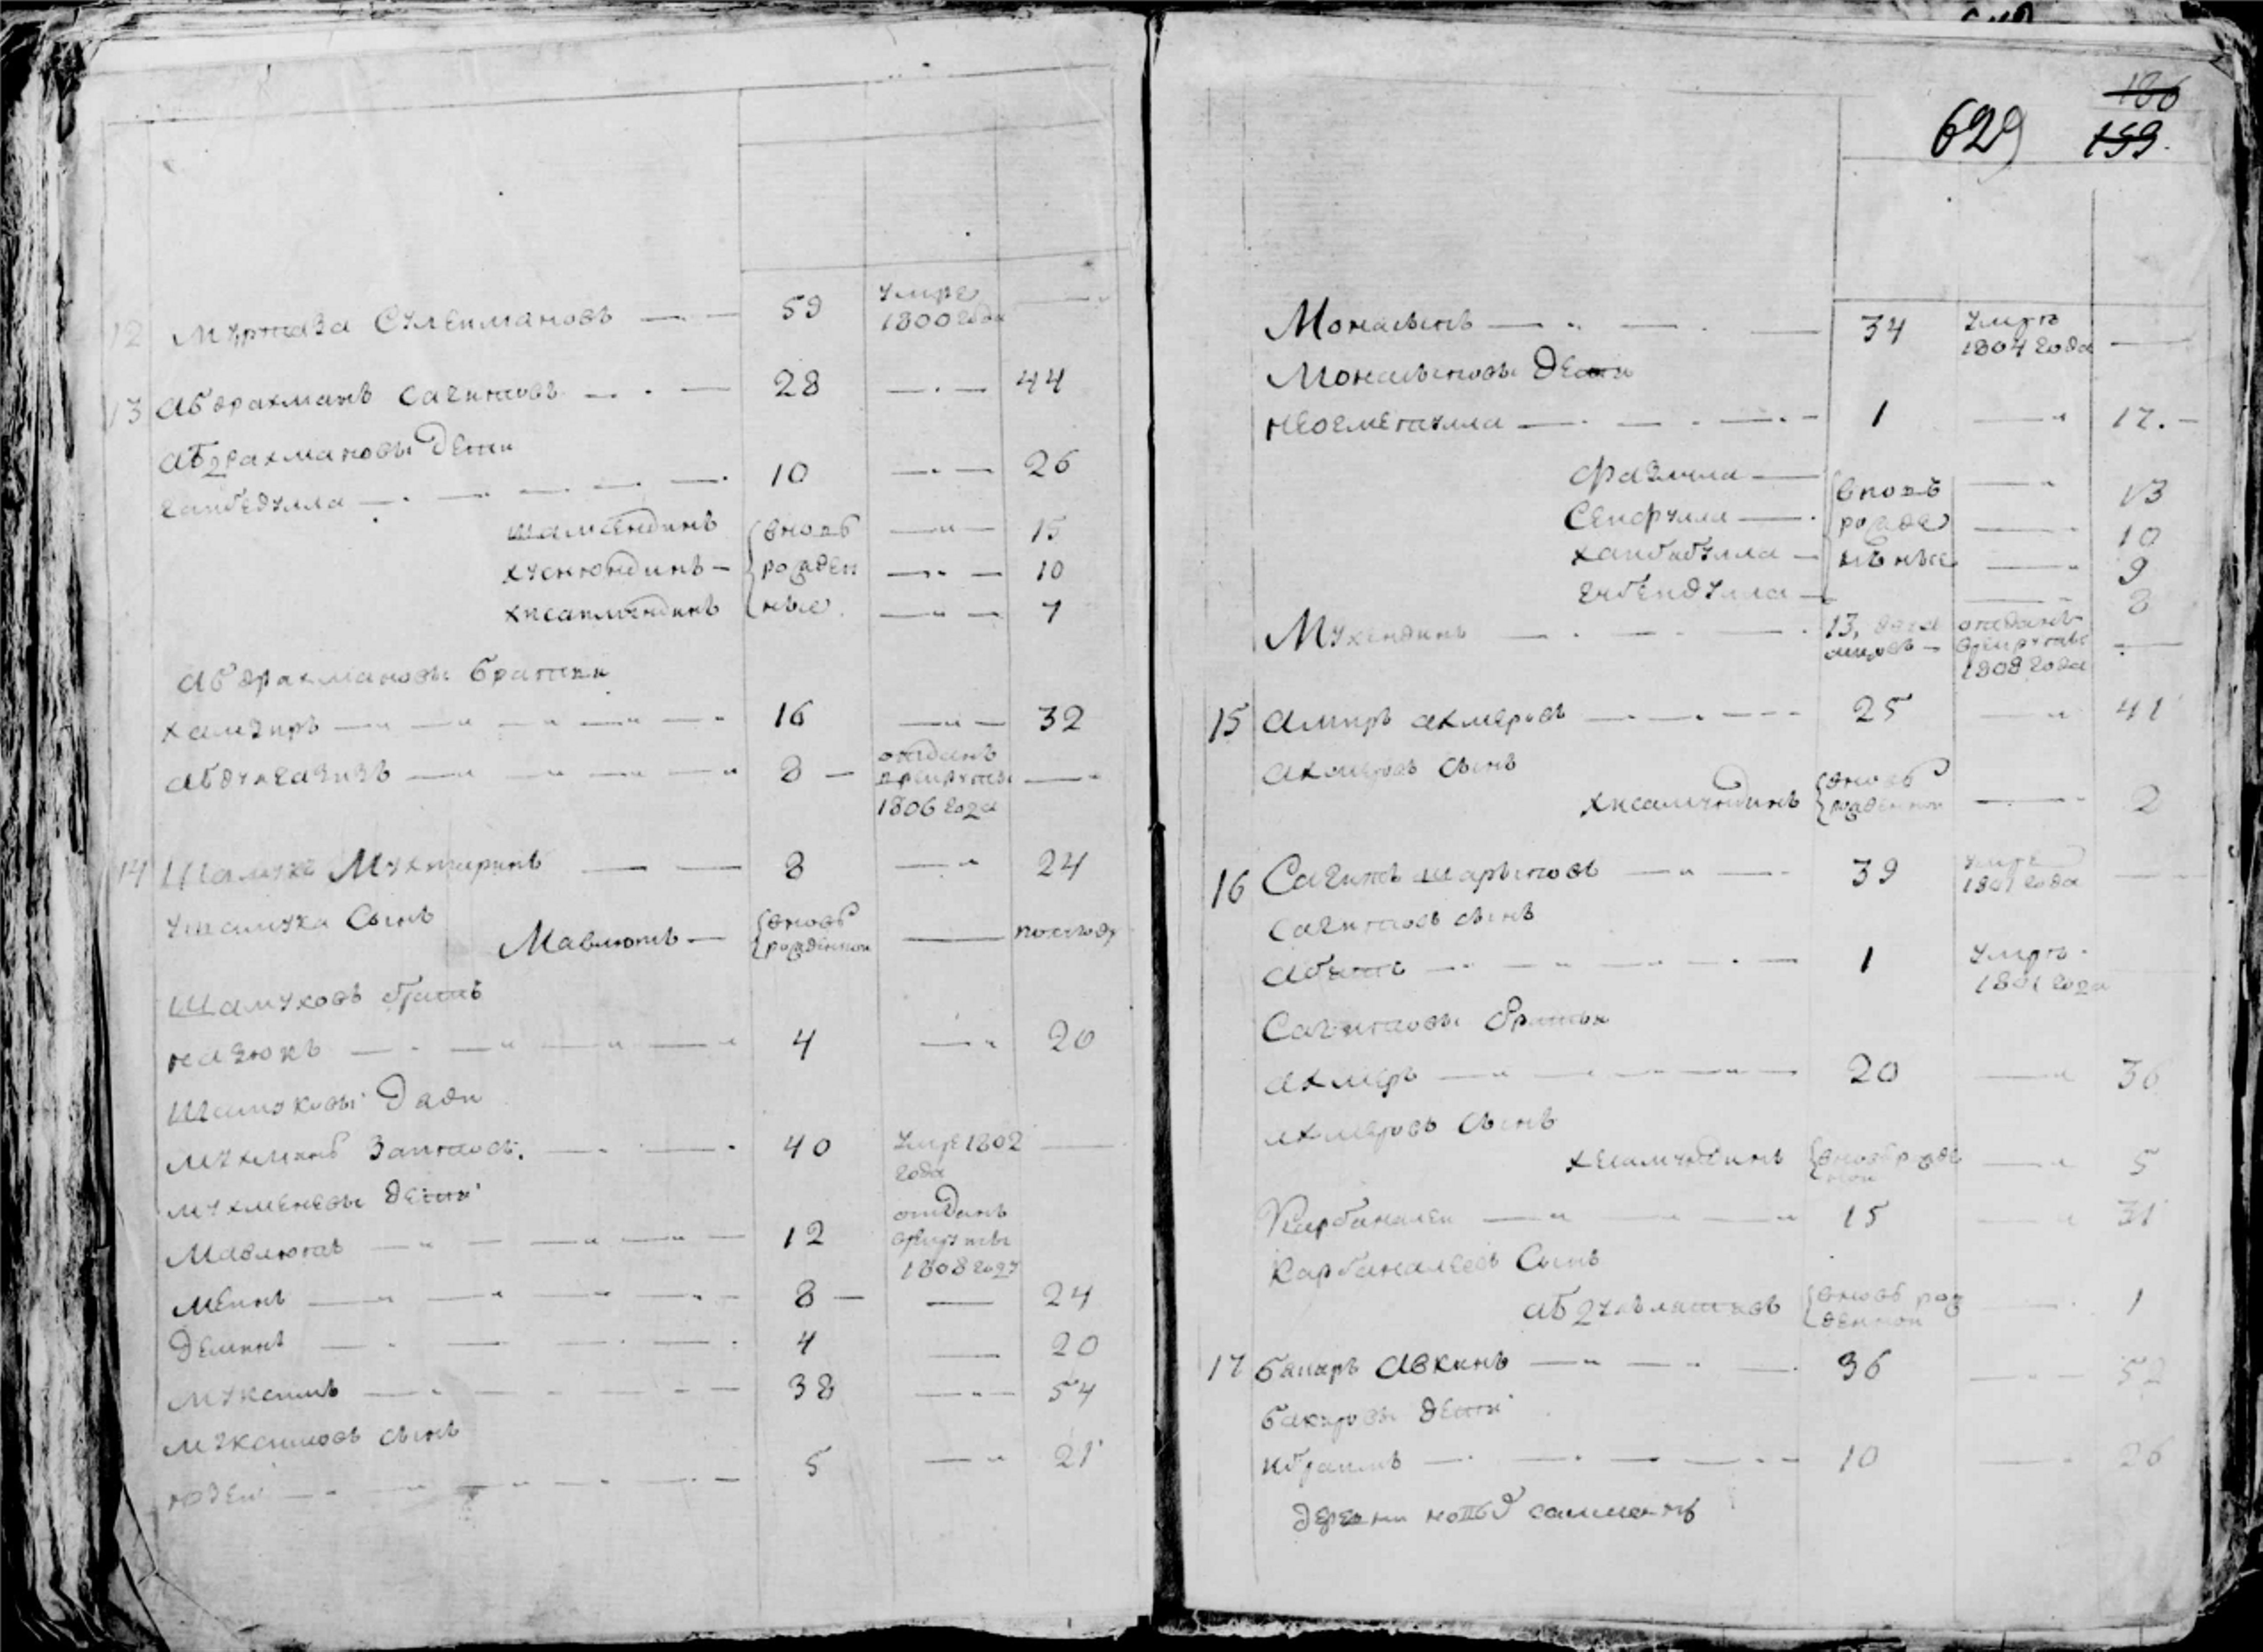 12 Муртаза Сулеимановъ 59 умре 1800 года
13 Абдрахманъ Сагитовъ 28 44
Абдрахмановы дети
Гаибедулла 10 26
Шамсендинъ {вновь 15
Хуснюндинъ рожден 10
Хисамендинъ ные 7
Абдрахмановы братья
Хамзиръ 16 32
Абдулгазизъ 8 отданъ врекруты 1806 года
14 Шамука Мухтаринъ 8 24
Шамука сынъ
Мавлютъ {вновь рожденнои полгоду
Шамуковъ братъ
Назюкъ 4 20
Шамуковы дяди
Мухмянъ Заитовъ 40 умре 1802 года
Мухменевы дети
Мавлютъ 12 отданъ врекруты 1808 году
Меинъ 8 24
Деминъ 4 20
Муксинъ 38 54
Муксиновъ сынъ
Юзеи 5 21
629 186
159
Монасыпъ 34 умръ 1804 года
Монасыповы дети
Неогметулла 1 17
Фазлула {вновь 13
Сеифулла рожде 10
Хаибибулла нъные 9
Гибеидулла 8
Мухендинъ 13 отданъ врекруты 1808 года
15 Амиръ Ахмеровъ 25 41
Ахмеровъ сынъ
Хисамундинъ {вновь рожденнои 2
16 Сагитъ Шарыповъ 39 умре 1801 года
Сагитовъ сынъ
Абитъ 1 умръ 1801 года
Сагитовы братья
Ахмеръ 20 36
Ахмеровъ сынъ
Хесамундинъ {вновь рожденнои 5
Курбаналеи 15 31
Карбаналеевъ сынъ
Абдулъ {вновь рожденнои 1
17 Бакиръ Авкинъ 36 52
Бакировы дети
Ибраимъ 10 26
деревни